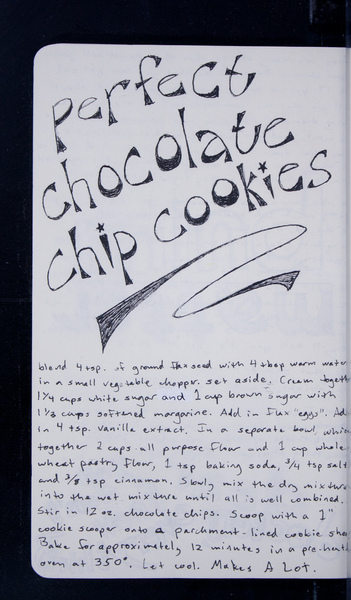 perfect
chocolate
chip cookies
blend 4 tsp. of ground flax seed with 4 tbsp warm water
in a small vegetable chopper. set aside. Cream togeth
1 1/4 cups white sugar and 1 cup brown sugar with
1 1/3 cups softened margarine. Add in flax "eggs". Ad
in 4 tsp. vanilla extract. In a separate bowl, whis
together 2 cups all purpose flour and 1 cup whole
wheat pastry flour, 1 tsp baking soda, 3/4 tsp salt
and 3/8 tsp cinnamon. Slowly mix the dry mixture
into the wet mixture until all is well combined.
Stir in 12 oz. chocolate chips. Scoop with a 1"
cookie scooper onto a parchment-lined cookie she
Bake for approximately 12 minutes in a pre-heate
oven at 350°. Let cool. Makes A Lot.